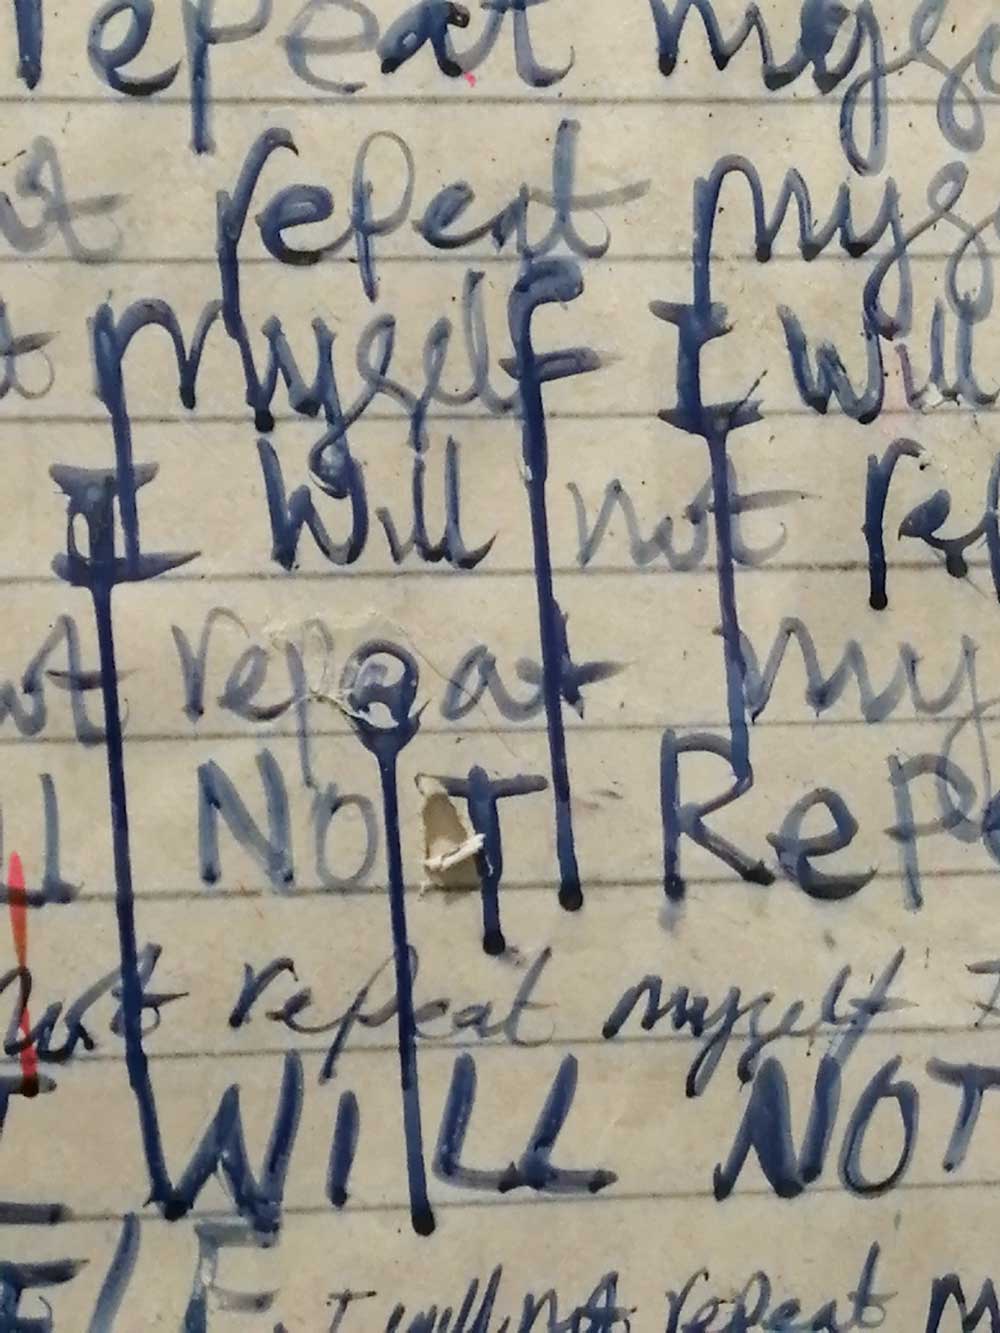 repeat myse
ot repeat myse
t myself I will
I will not rep
not repeat my
ll NOT Repe
not repeat myself I
I WILL NOT
ELF I will not repeat m